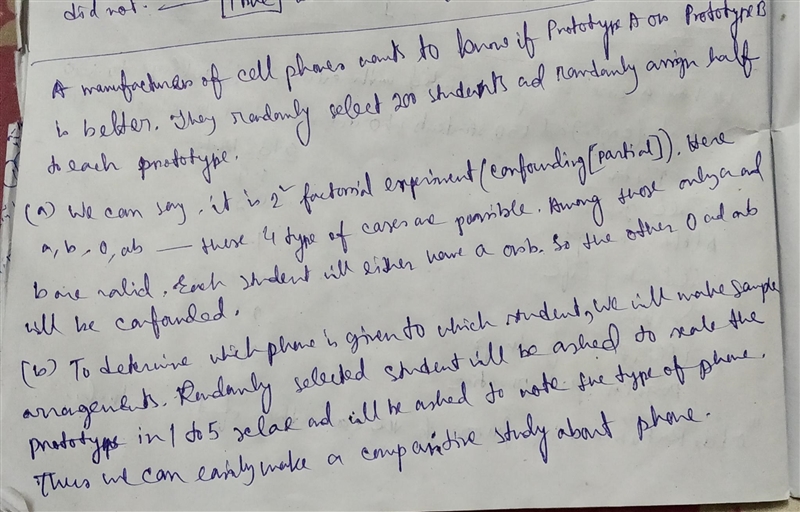 did not.
A manufacturer of cell phones wants to know if Prototype A or Prototype B
is better. They randomly select 200 students ad randomly assign half
to each prototype.
(a) We can say, it is 2² factorial experiment (confounding [partial]). Here
a, b, 0, ab — these 4 type of cases are possible. Among those only a ad
b are valid. Each student will either have a or b. So the other 0 ad ab
will be confounded.
(b) To determine which phone is given to which student, we will make sample
arragements. Randomly selected student will be asked to scale the
prototype in 1 to 5 scale ad will be asked to note the type of phone.
Thus we can easily make a comparitive study about phone.